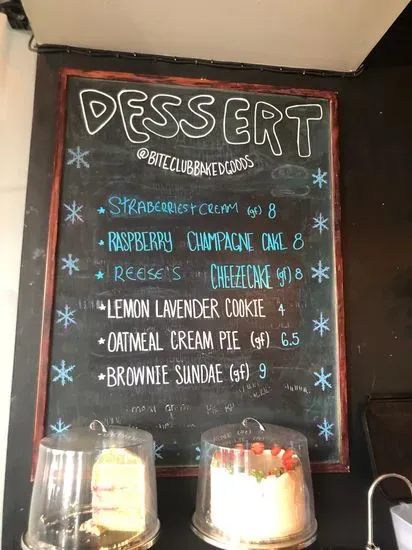 DESSERT
@BITECLUBBAKEDGOODS
* STRABERRIES + CREAM (gf) 8
* RASPBERRY CHAMPAGNE CAKE 8
* REESE'S CHEEZECAKE (gf) 8
* LEMON LAVENDER COOKIE 4
* OATMEAL CREAM PIE (gf) 6.5
* BROWNIE SUNDAE (gf) 9